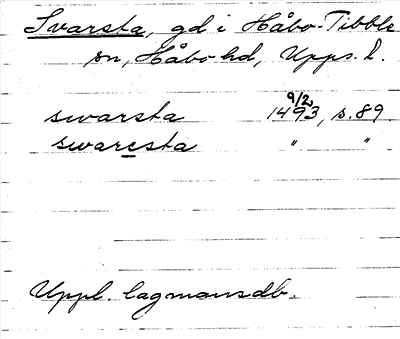 Svarsta, gd i Håbo-Tibble
sn, Håbo hd, Upps. l.
9/2
swarsta 1493, s. 89.
swaresta " "
Uppl. lagmansdb.